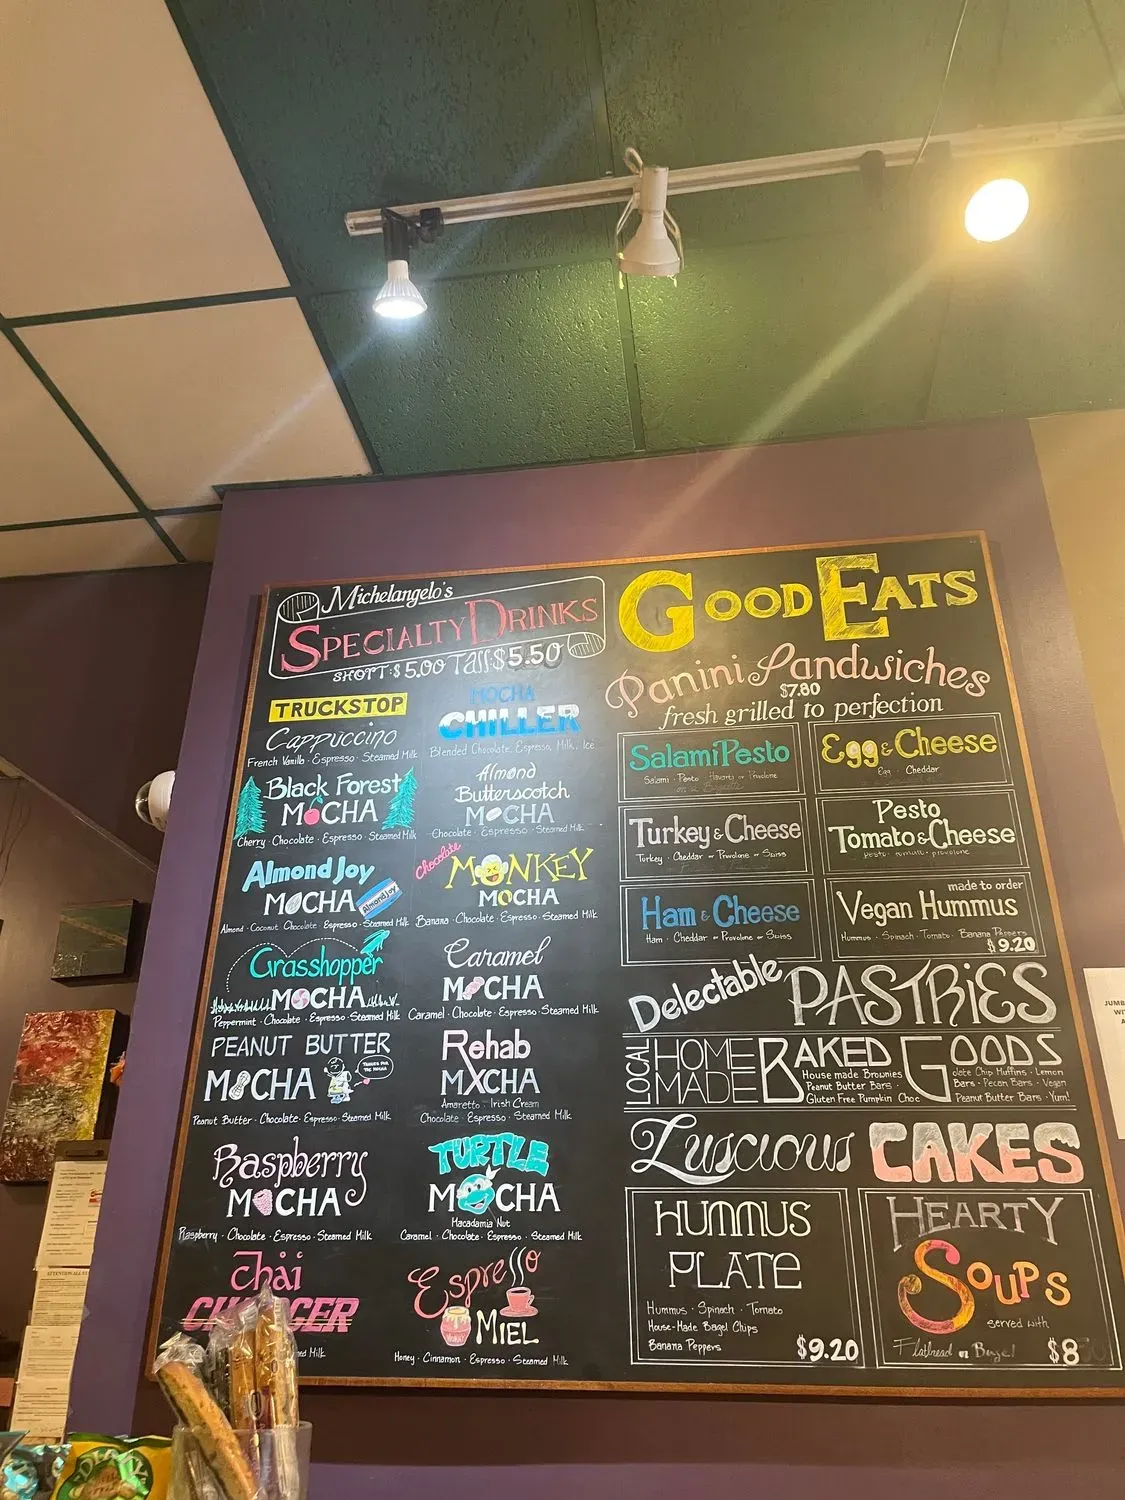 Michelangelo's
SPECIALTY DRINKS
SHORT: $5.00 Tall: $5.50
TRUCKSTOP
Cappuccino
French Vanilla · Espresso · Steamed Milk
Black Forest
MOCHA
Cherry · Chocolate · Espresso · Steamed Milk
Almond Joy
MOCHA
Almond Joy
Almond · Coconut Chocolate · Espresso · Steamed Milk
Grasshopper
MOCHA
Peppermint · Chocolate · Espresso · Steamed Milk
PEANUT BUTTER
MOCHA
THANKS FOR THE MOCHA
Peanut Butter · Chocolate · Espresso · Steamed Milk
Raspberry
MOCHA
Raspberry · Chocolate · Espresso · Steamed Milk
Chai
CHARGER
Milk
MOCHA
CHILLER
Blended Chocolate, Espresso, Milk, Ice
Almond
Butterscotch
MOCHA
Chocolate · Espresso · Steamed Milk
Chocolate
MONKEY
MOCHA
Banana · Chocolate · Espresso · Steamed Milk
Caramel
MOCHA
Caramel · Chocolate · Espresso · Steamed Milk
Rehab
MXCHA
Amaretto · Irish Cream
Chocolate · Espresso · Steamed Milk
TURTLE
MOCHA
Macadamia Nut
Caramel · Chocolate · Espresso · Steamed Milk
Espresso
HONEY
MIEL
Honey · Cinnamon · Espresso · Steamed Milk
GOOD EATS
Panini Sandwiches
$7.80
fresh grilled to perfection
Salami Pesto
Salami · Pesto · Havarti or Provolone
Egg & Cheese
Egg · Cheddar
Turkey & Cheese
Turkey · Cheddar or Provolone or Swiss
Pesto
Tomato & Cheese
pesto · tomato · provolone
Ham & Cheese
Ham · Cheddar or Provolone or Swiss
made to order
Vegan Hummus
Hummus · Spinach · Tomato · Banana Peppers
$9.20
Delectable PASTRIES
LOCAL
HOME
MADE
BAKED GOODS
House made Brownies
Peanut Butter Bars ·
Gluten Free Pumpkin Choc
olate Chip Muffins · Lemon
Bars · Pecan Bars · Vegan
Peanut Butter Bars · Yum!
Luscious CAKES
HUMMUS
PLATE
Hummus · Spinach · Tomato
House-Made Bagel Chips
Banana Peppers
$9.20
HEARTY
SOUPS
served with
Flatbread or Bagel
$8